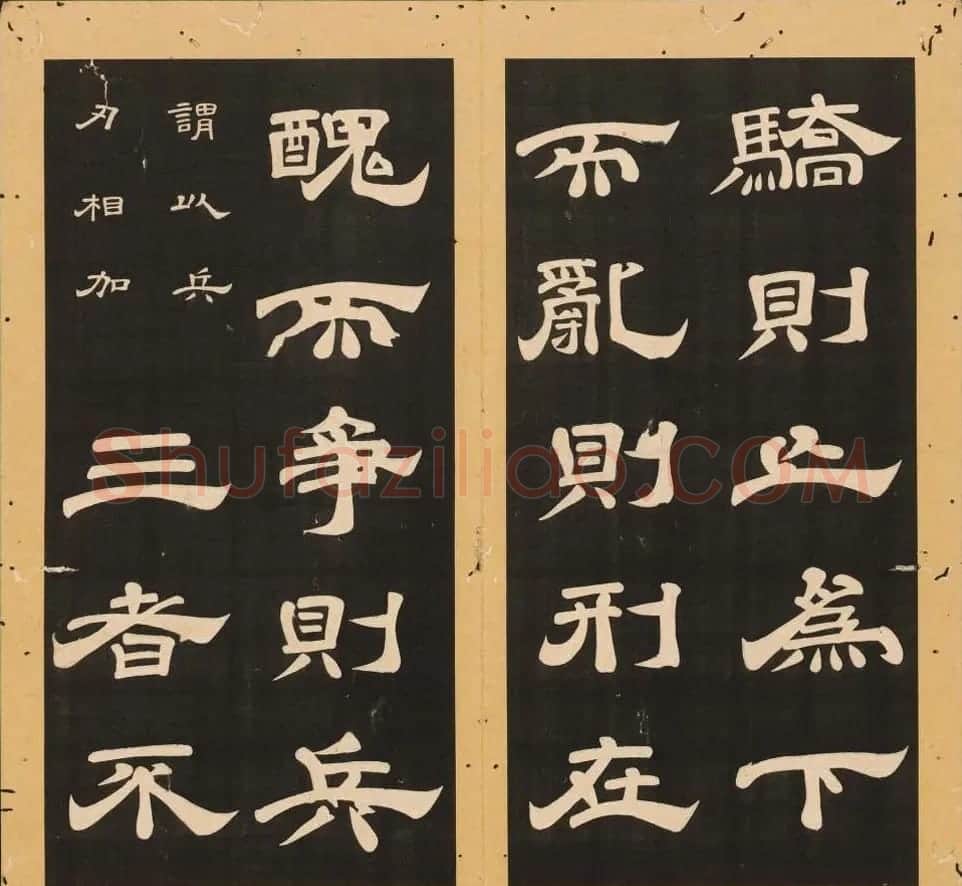 驕則亡為下
而亂則刑在
醜而爭則兵
謂以兵
刃相加
三者不
Shufaziliao.COM